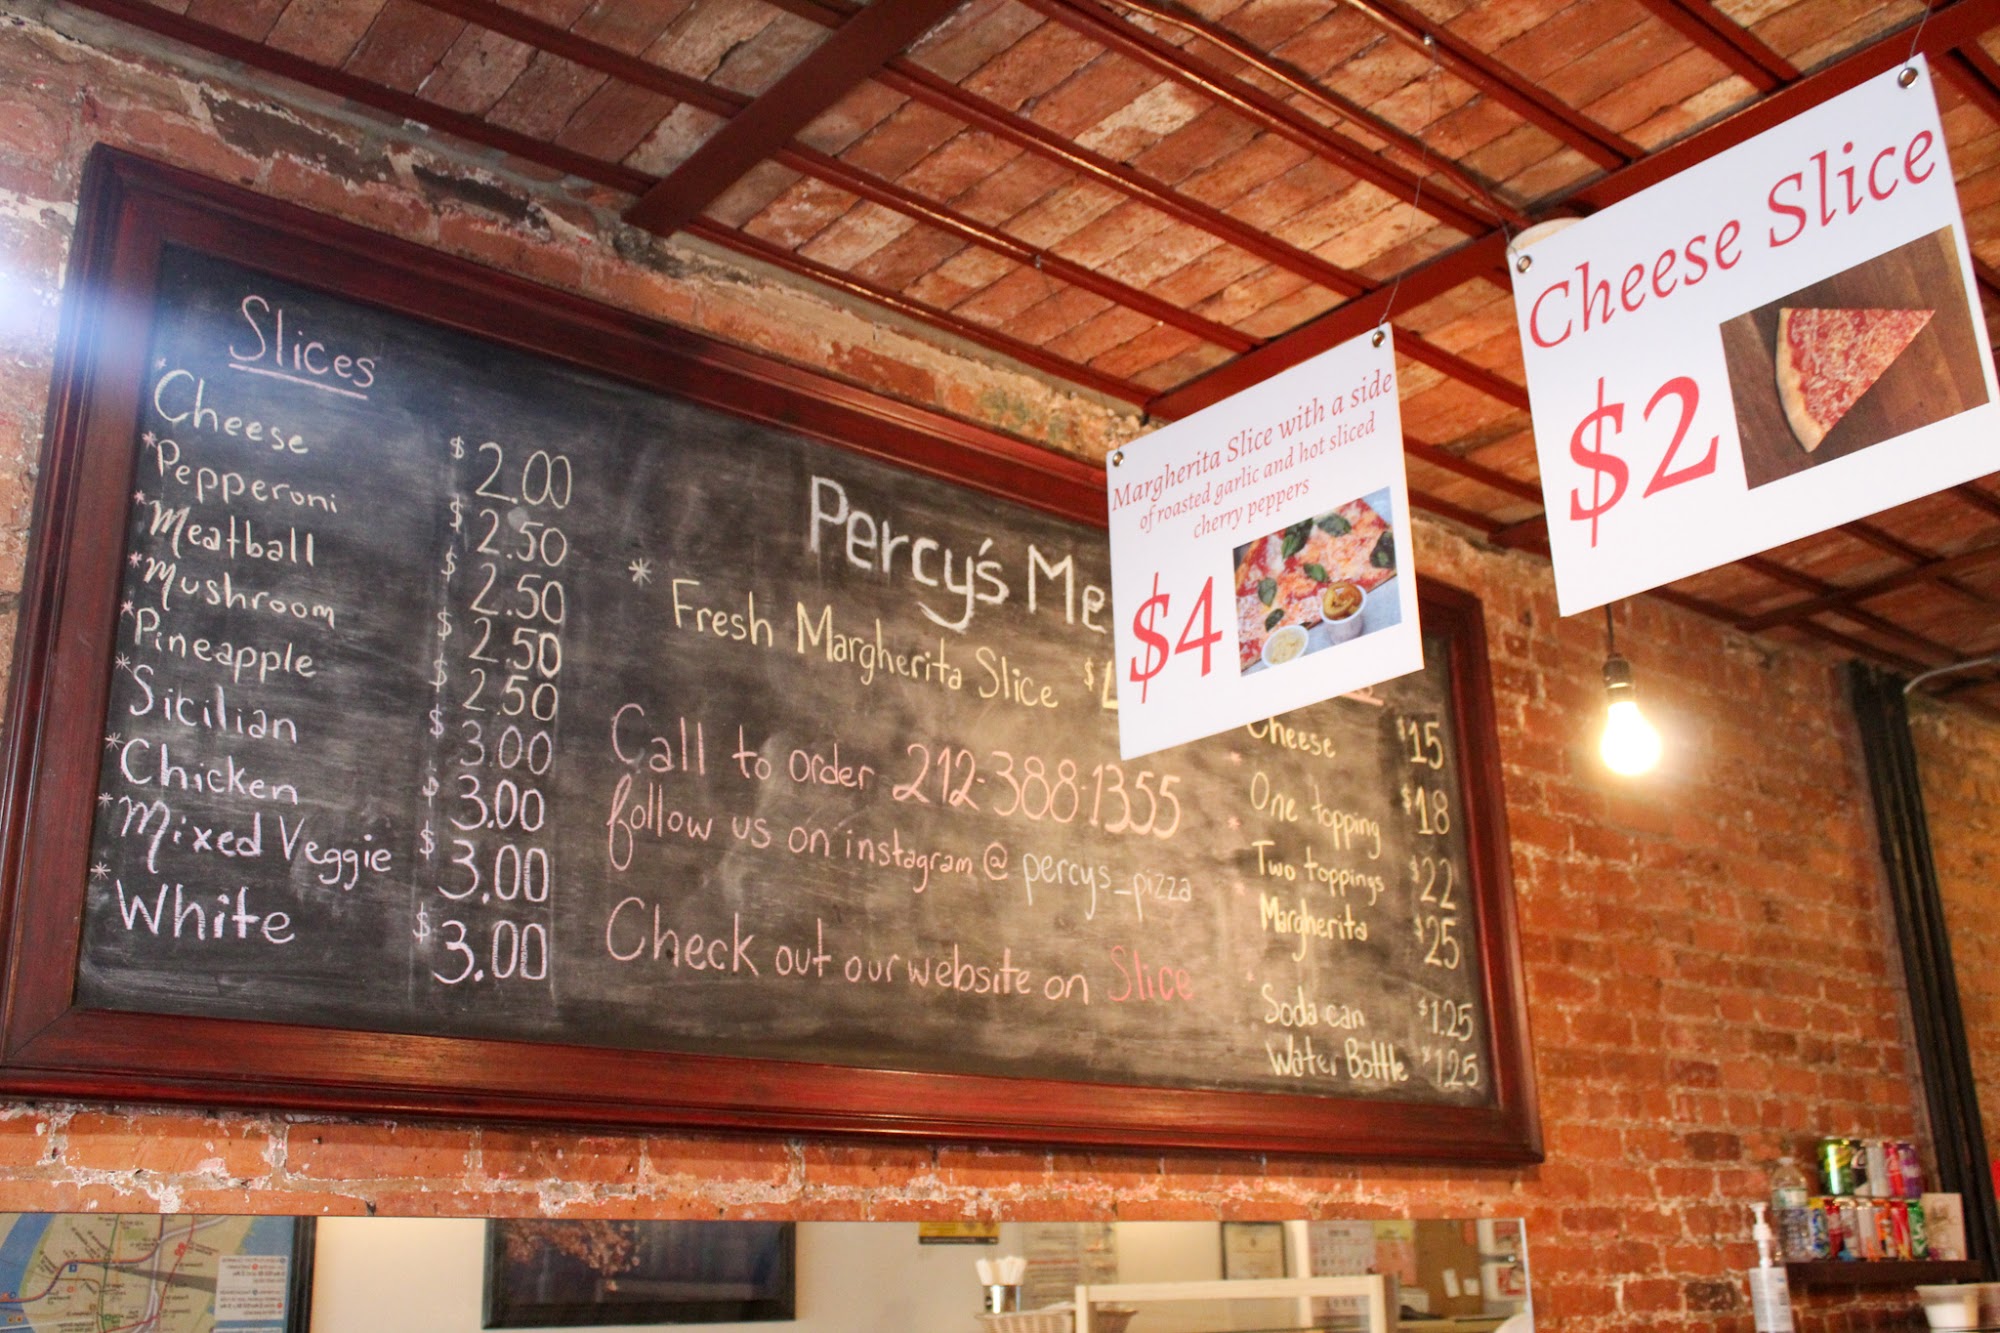 Slices
* Cheese $2.00
* Pepperoni $2.50
* Meatball $2.50
* Mushroom $2.50
* Pineapple $2.50
* Sicilian $3.00
* Chicken $3.00
* Mixed Veggie $3.00
* White $3.00
Percy's Me
* Fresh Margherita Slice $
Call to order 212-388-1355
follow us on instagram @ percys_pizza
Check out our website on Slice
Cheese $15
One topping $18
Two toppings $22
Margherita $25
Soda can $1.25
Water Bottle $1.25
Margherita Slice with a side
of roasted garlic and hot sliced
cherry peppers
$4
Cheese Slice
$2